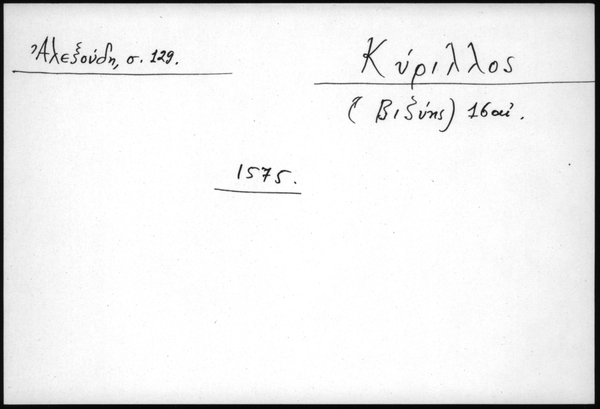 Ἀλεξούδη, σ. 129.
Κύριλλος
( Βιζύης) 16 αἰ.
1575.